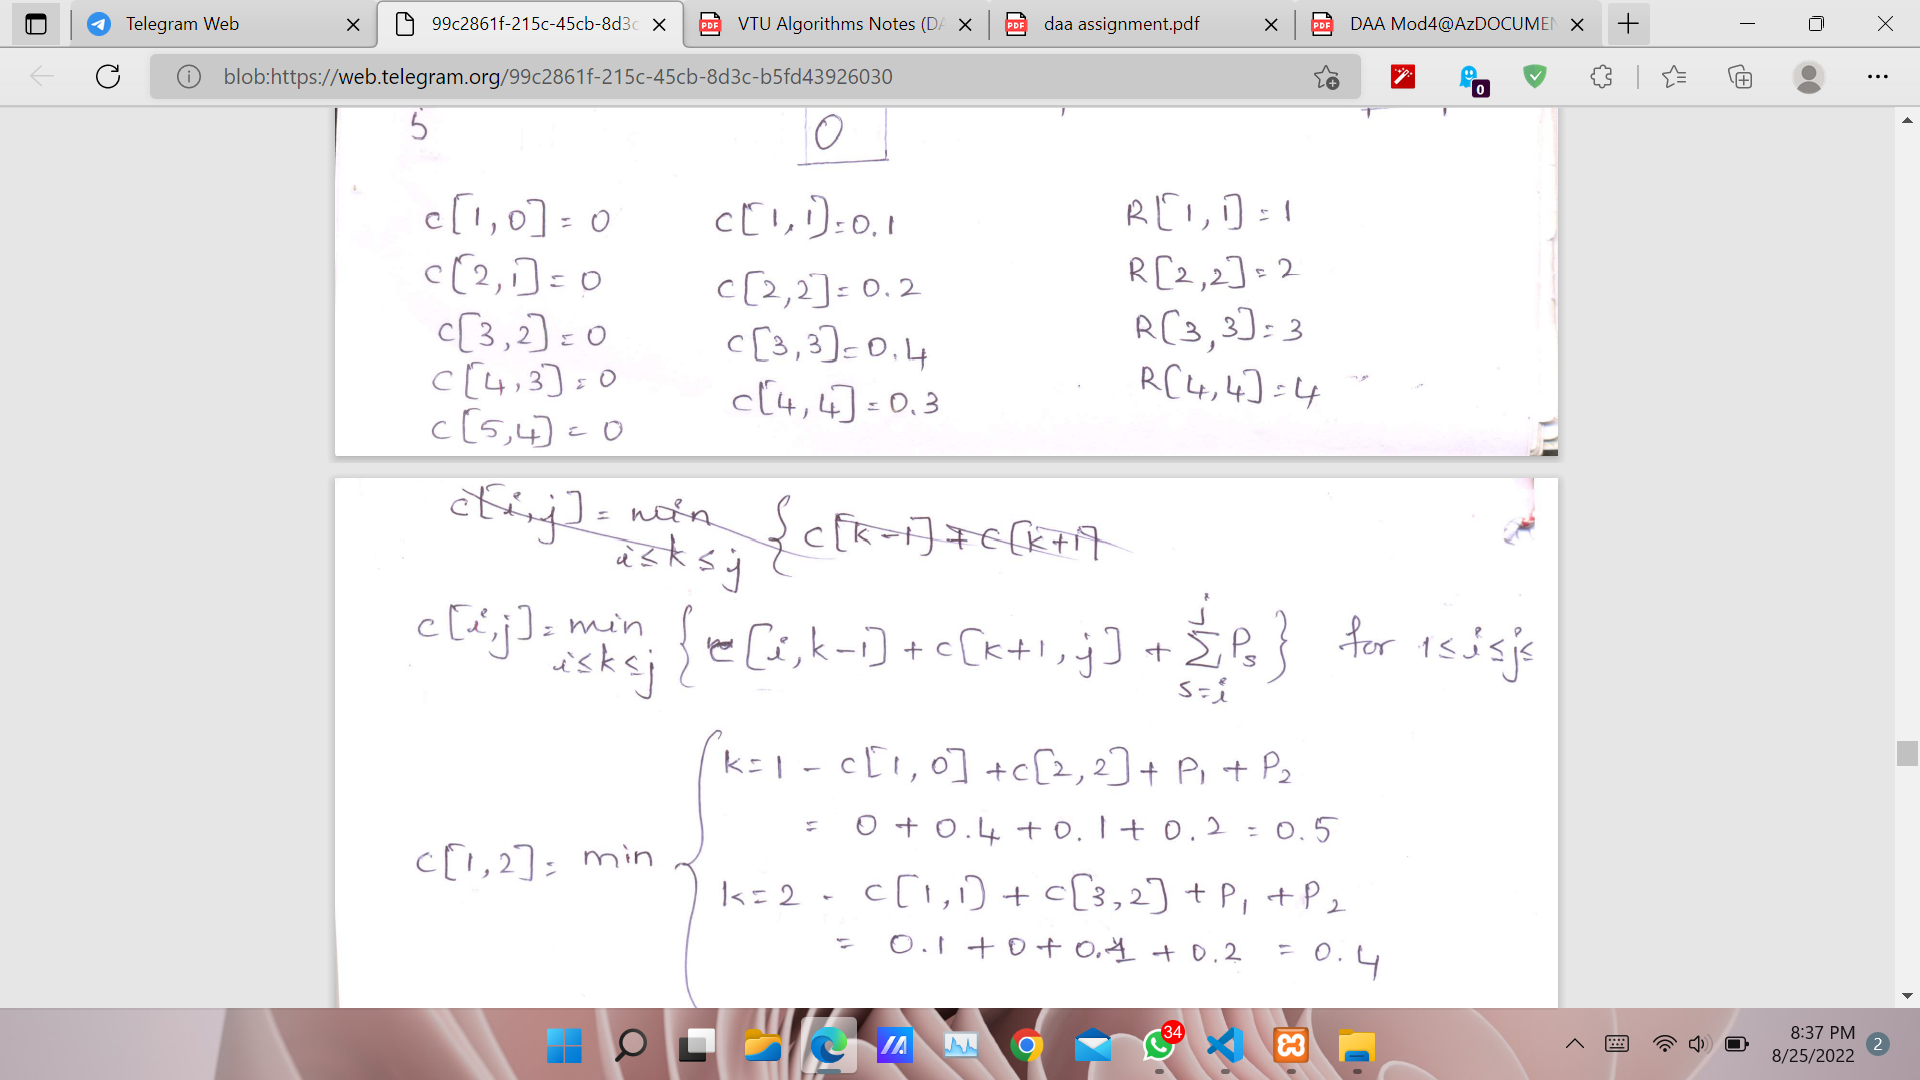 Telegram Web
99c2861f-215c-45cb-8d3c
VTU Algorithms Notes (DA
daa assignment.pdf
DAA Mod4@AzDOCUMEN
blob:https://web.telegram.org/99c2861f-215c-45cb-8d3c-b5fd43926030
0
5
0
C[1,0] = 0 C[1,1] = 0.1 R[1,1] = 1
C[2,1] = 0 C[2,2] = 0.2 R[2,2] = 2
C[3,2] = 0 C[3,3] = 0.4 R[3,3] = 3
C[4,3] = 0 C[4,4] = 0.3 R[4,4] = 4
C[5,4] = 0
C[i,j] = min { C[k-1] + C[k+1]
i≤k≤j
C[i,j] = min { C[i,k-1] + C[k+1,j] + Σ Ps } for 1≤i≤j≤
i≤k≤j
j
s=i
k=1 - C[1,0] + C[2,2] + P1 + P2
= 0 + 0.4 + 0.1 + 0.2 = 0.5
C[1,2] = min
k=2 - C[1,1] + C[3,2] + P1 + P2
= 0.1 + 0 + 0.1 + 0.2 = 0.4
34
8:37 PM
8/25/2022
2